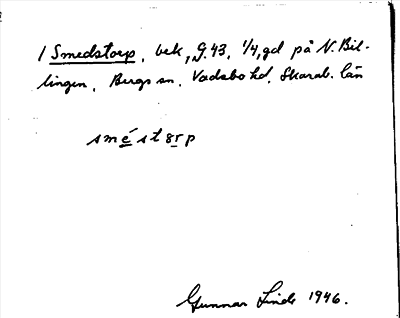 1 Smedstorp, bek, G.43, 1/4, gd på N. Bil-
lingen, Bergs sn, Vadsbo hd, Skarab. län
sméstɜrp
Gunnar Linde 1946.